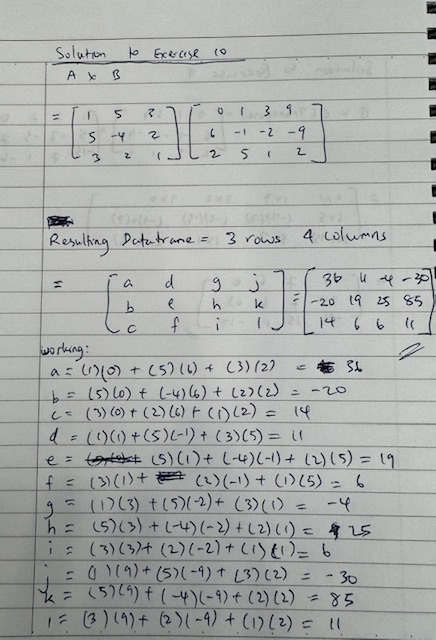 Solution to Exercise 10
A x B
= [ 1 5 3 ] [ 0 1 3 9 ]
5 -4 2 6 -1 -2 -9
3 2 1 2 5 1 2
Resulting Dataframe = 3 rows 4 columns
= [ a d g j ] = [ 36 11 -4 -30 ]
b e h k -20 19 25 85
c f i l 14 6 6 11
working:
a = (1)(0) + (5)(6) + (3)(2) = 36
b = (5)(0) + (-4)(6) + (2)(2) = -20
c = (3)(0) + (2)(6) + (1)(2) = 14
d = (1)(1) + (5)(-1) + (3)(5) = 11
e = (5)(1) + (-4)(-1) + (2)(5) = 19
f = (3)(1) + (2)(-1) + (1)(5) = 6
g = (1)(3) + (5)(-2) + (3)(1) = -4
h = (5)(3) + (-4)(-2) + (2)(1) = 25
i = (3)(3) + (2)(-2) + (1)(1) = 6
j = (1)(9) + (5)(-9) + (3)(2) = -30
k = (5)(9) + (-4)(-9) + (2)(2) = 85
l = (3)(9) + (2)(-9) + (1)(2) = 11